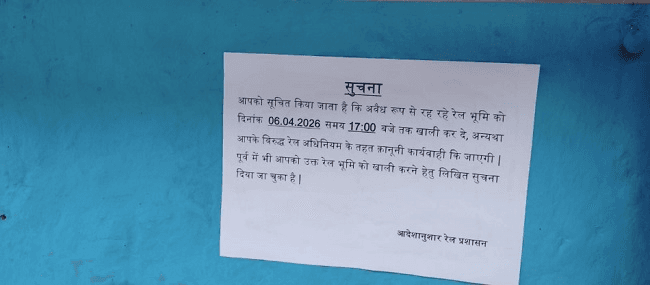 सुचना
आपको सूचित किया जाता है कि अवैध रूप से रह रहे रेल भूमि को
दिनांक 06.04.2026 समय 17:00 बजे तक खाली कर दे, अन्यथा
आपके विरुद्ध रेल अधिनियम के तहत क़ानूनी कार्यवाही कि जाएगी |
पूर्व में भी आपको उक्त रेल भूमि को खाली करने हेतु लिखित सुचना
दिया जा चुका है |
आदेशानुशार रेल प्रशासन